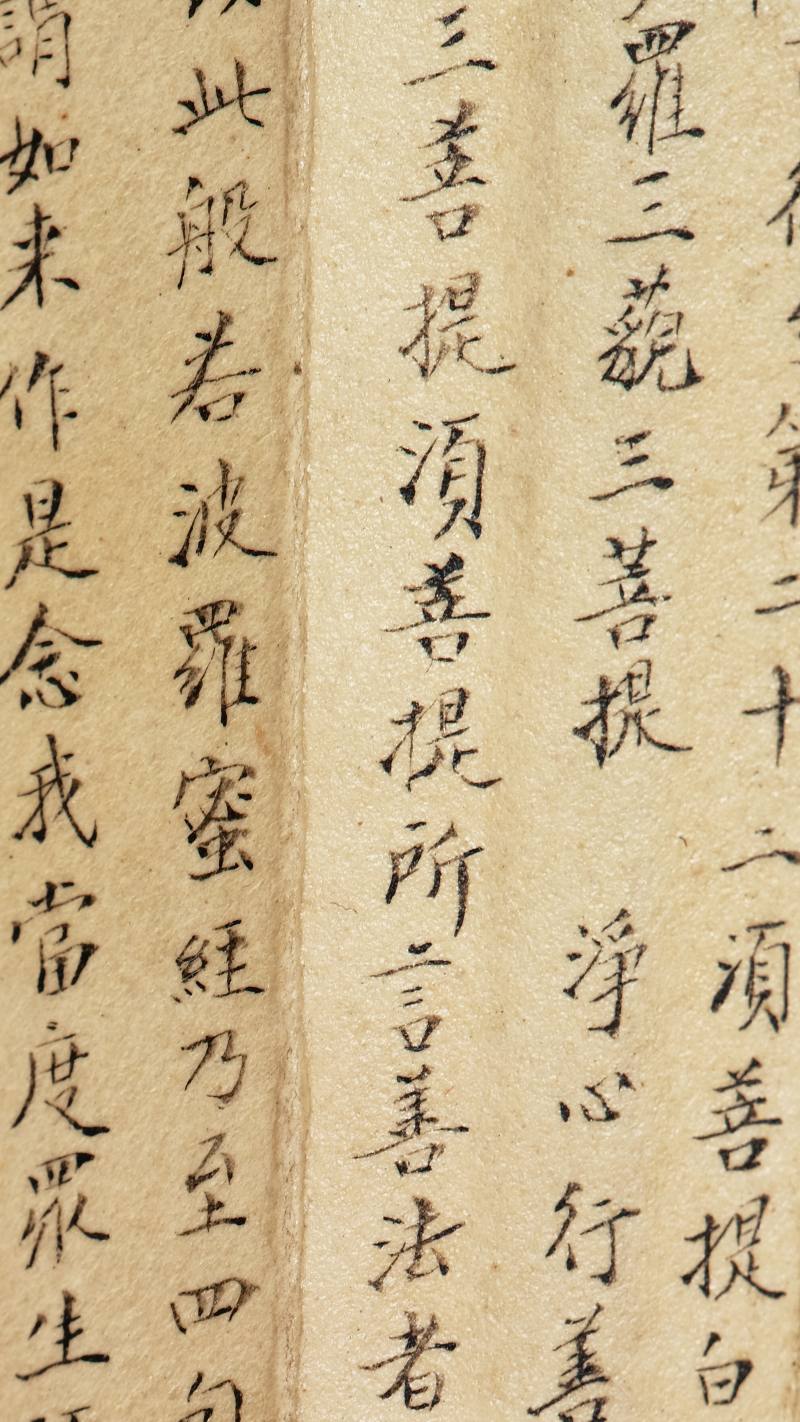 第二十二須菩提白
羅三藐三菩提 淨心行善
三菩提須菩提所言善法者
此般若波羅蜜經乃至四句
謂如来作是念我當度眾生